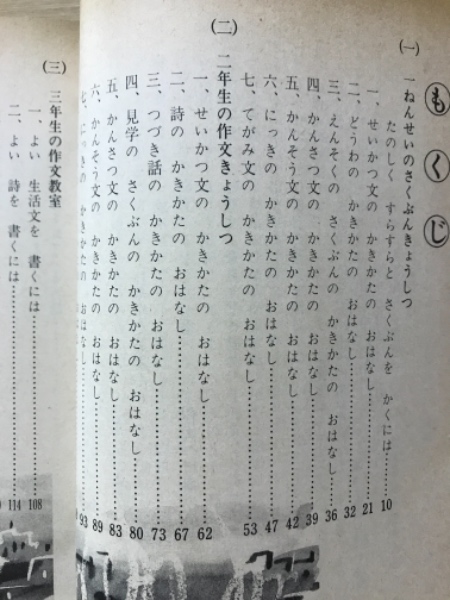 もくじ
(一) 一ねんせいのさくぶんきょうしつ
たのしく すらすらと さくぶんを かくには……10
一、せいかつ文の かきかたの おはなし……21
二、どうわの かきかたの おはなし……32
三、えんそくの さくぶんの かきかたの おはなし……36
四、かんさつ文の かきかたの おはなし……39
五、かんそう文の かきかたの おはなし……42
六、にっきの かきかたの おはなし……47
七、てがみ文の かきかたの おはなし……53
(二) 二年生の作文きょうしつ
一、せいかつ文の かきかたの おはなし……62
二、詩の かきかたの おはなし……67
三、つづき話の かきかたの おはなし……73
四、見学の さくぶんの かきかたの おはなし……80
五、かんさつ文の かきかたの おはなし……83
六、かんそう文の かきかたの おはなし……89
七、にっきの かきかたの おはなし……93
(三) 三年生の作文教室
一、よい 生活文を 書くには……108
二、よい 詩を 書くには……114